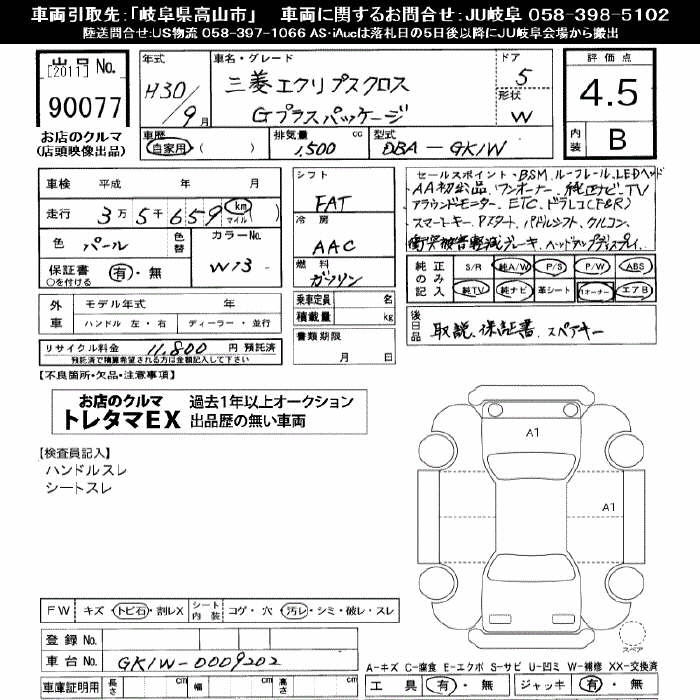 車両引取先:「岐阜県高山市」 車両に関するお問合せ:JU岐阜 058-398-5102
陸送問合せ:US物流 058-397-1066 AS・iAucは落札日の5日後以降にJU岐阜会場から搬出
出品 No.
[2011]
90077
お店のクルマ
(店頭映像出品)
年式
H30/9月
車名・グレード
三菱エクリプスクロス
Gプラスパッケージ
ドア
5
形状
W
評価点
4.5
内装
B
車歴
自家用 ( )
排気量 cc
1,500
型式
DBA-GK1W
車検 平成 年 月
走行 3万5千659 km マイル ( )
色 パール
色替
カラーNo.
W13
保証書 有・無
○を付ける
シフト
FAT
冷房
AAC
燃料
ガソリン
乗車定員 名
積載量 kg
書類期限
月 日
外車
モデル年式 年
ハンドル 左・右 ディーラー・並行
リサイクル料金 11,800 円 預託済
預託済で積算希望される方は金額記入して下さい
セールスポイント・BSM.ルーフレール.LEDヘッド
AA初出品.ワンオーナー.純正ナビ.TV
アラウンドモニター.ETC.ドラレコ(F&R)
スマートキー.Pスタート.パドルシフト.クルコン.
衝突被害軽減ブレーキ.ヘッドアップディスプレイ.
純正のみ記入
S/R 純A/W P/S P/W ABS
純TV 純ナビ 革シート 1オーナー エアB
後日品
取説.保証書.スペアキー
【不良箇所・欠品・注意事項】
お店のクルマ
トレタマEX
過去1年以上オークション
出品歴の無い車両
【検査員記入】
ハンドルスレ
シートスレ
A1
A1
スペア
FW キズ・トビ石・割レX
シート内装 コゲ・穴・汚レ・シミ・破レ・スレ
登録No.
車台No. GK1W-0009202
車庫証明用 長さ cm 幅 cm 高さ cm
A-キズ C-腐食 E-エクボ S-サビ U-凹ミ W-補修 XX-交換済
工具 有・無 ジャッキ 有・無